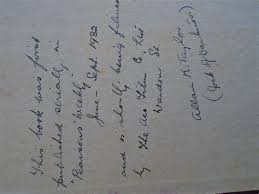 "This book was first
published serially in
"Pearsons' Weekly"
June - Sept. 1932
and is shortly being filmed
by
Wardour St.
Allan K. Taylor